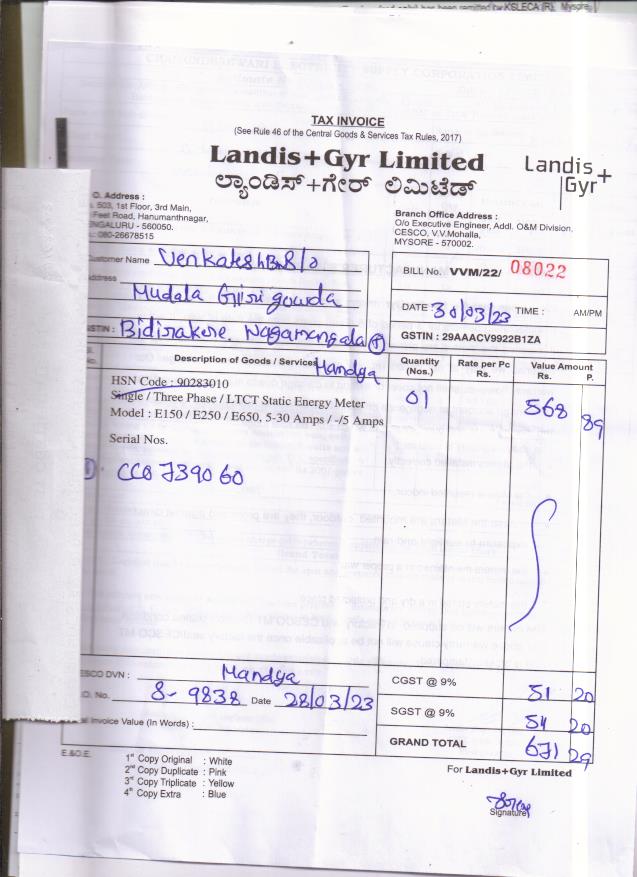 KSLECA (R), Mysore
TAX INVOICE
(See Rule 46 of the Central Goods & Services Tax Rules, 2017)
Landis+Gyr Limited
ಲ್ಯಾಂಡಿಸ್+ಗೇರ್ ಲಿಮಿಟೆಡ್
Landis+
Gyr
O. Address :
503, 1st Floor, 3rd Main,
Feet Road, Hanumanthnagar,
NGALURU - 560050.
080-26678515
Branch Office Address :
O/o Executive Engineer, Addl. O&M Division,
CESCO, V.V.Mohalla,
MYSORE - 570002.
Customer Name Venkatesh B.N S/o
Address
Mudala Giri gowda
GSTIN : Bidirakere. Nagamangala (T)
Mandya
BILL No. VVM/22/ 08022
DATE 30/03/23 TIME : AM/PM
GSTIN : 29AAACV9922B1ZA
No. Description of Goods / Services Quantity (Nos.) Rate per Pc Rs. Value Amount Rs. P.
HSN Code : 90283010
01 568 89
Single / Three Phase / LTCT Static Energy Meter
Model : E150 / E250 / E650, 5-30 Amps / -/5 Amps
Serial Nos.
CC0739060
CESCO DVN : Mandya
CGST @ 9% 51 20
O. No. 8-9838 Date 28/03/23
SGST @ 9% 51 20
Invoice Value (In Words) :
GRAND TOTAL 671 29
E.&O.E.
1st Copy Original : White
2nd Copy Duplicate : Pink
3rd Copy Triplicate : Yellow
4th Copy Extra : Blue
For Landis+Gyr Limited
Signature